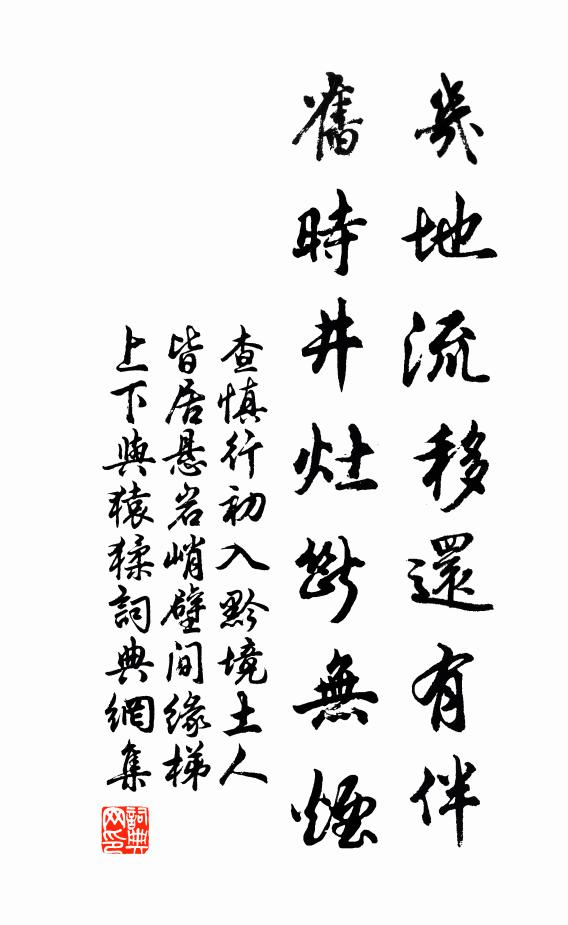 幾地流移還有伴
舊時井灶斷無煙
查慎行初入黔境土人
皆居悬岩峭壁间缘梯
上下與猿猱詞典網集
詞典网印